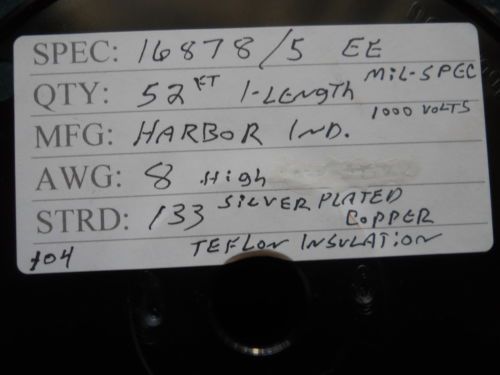 SPEC: 16878/5 EE
MIL-SPEC
QTY: 52 FT 1-LENGTH
1000 VOLTS
MFG: HARBOR IND.
AWG: 8 High
STRD: 133 SILVER PLATED COPPER
104 TEFLON INSULATION